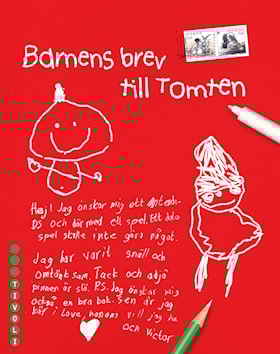 Barnens brev
till Tomten
Hej! Jag önskar mig ett Nintendo
DS och där med ett spel. Ett data
spel skulle inte göra något.
Jag har varit snäll och
omtänksam. Tack och adjö
pinnen är slö. P.S. Jag önskar mig
också en bra bok. Sen är jag
kär i Love, honom vill jag ha
och Victor
TIVOLI